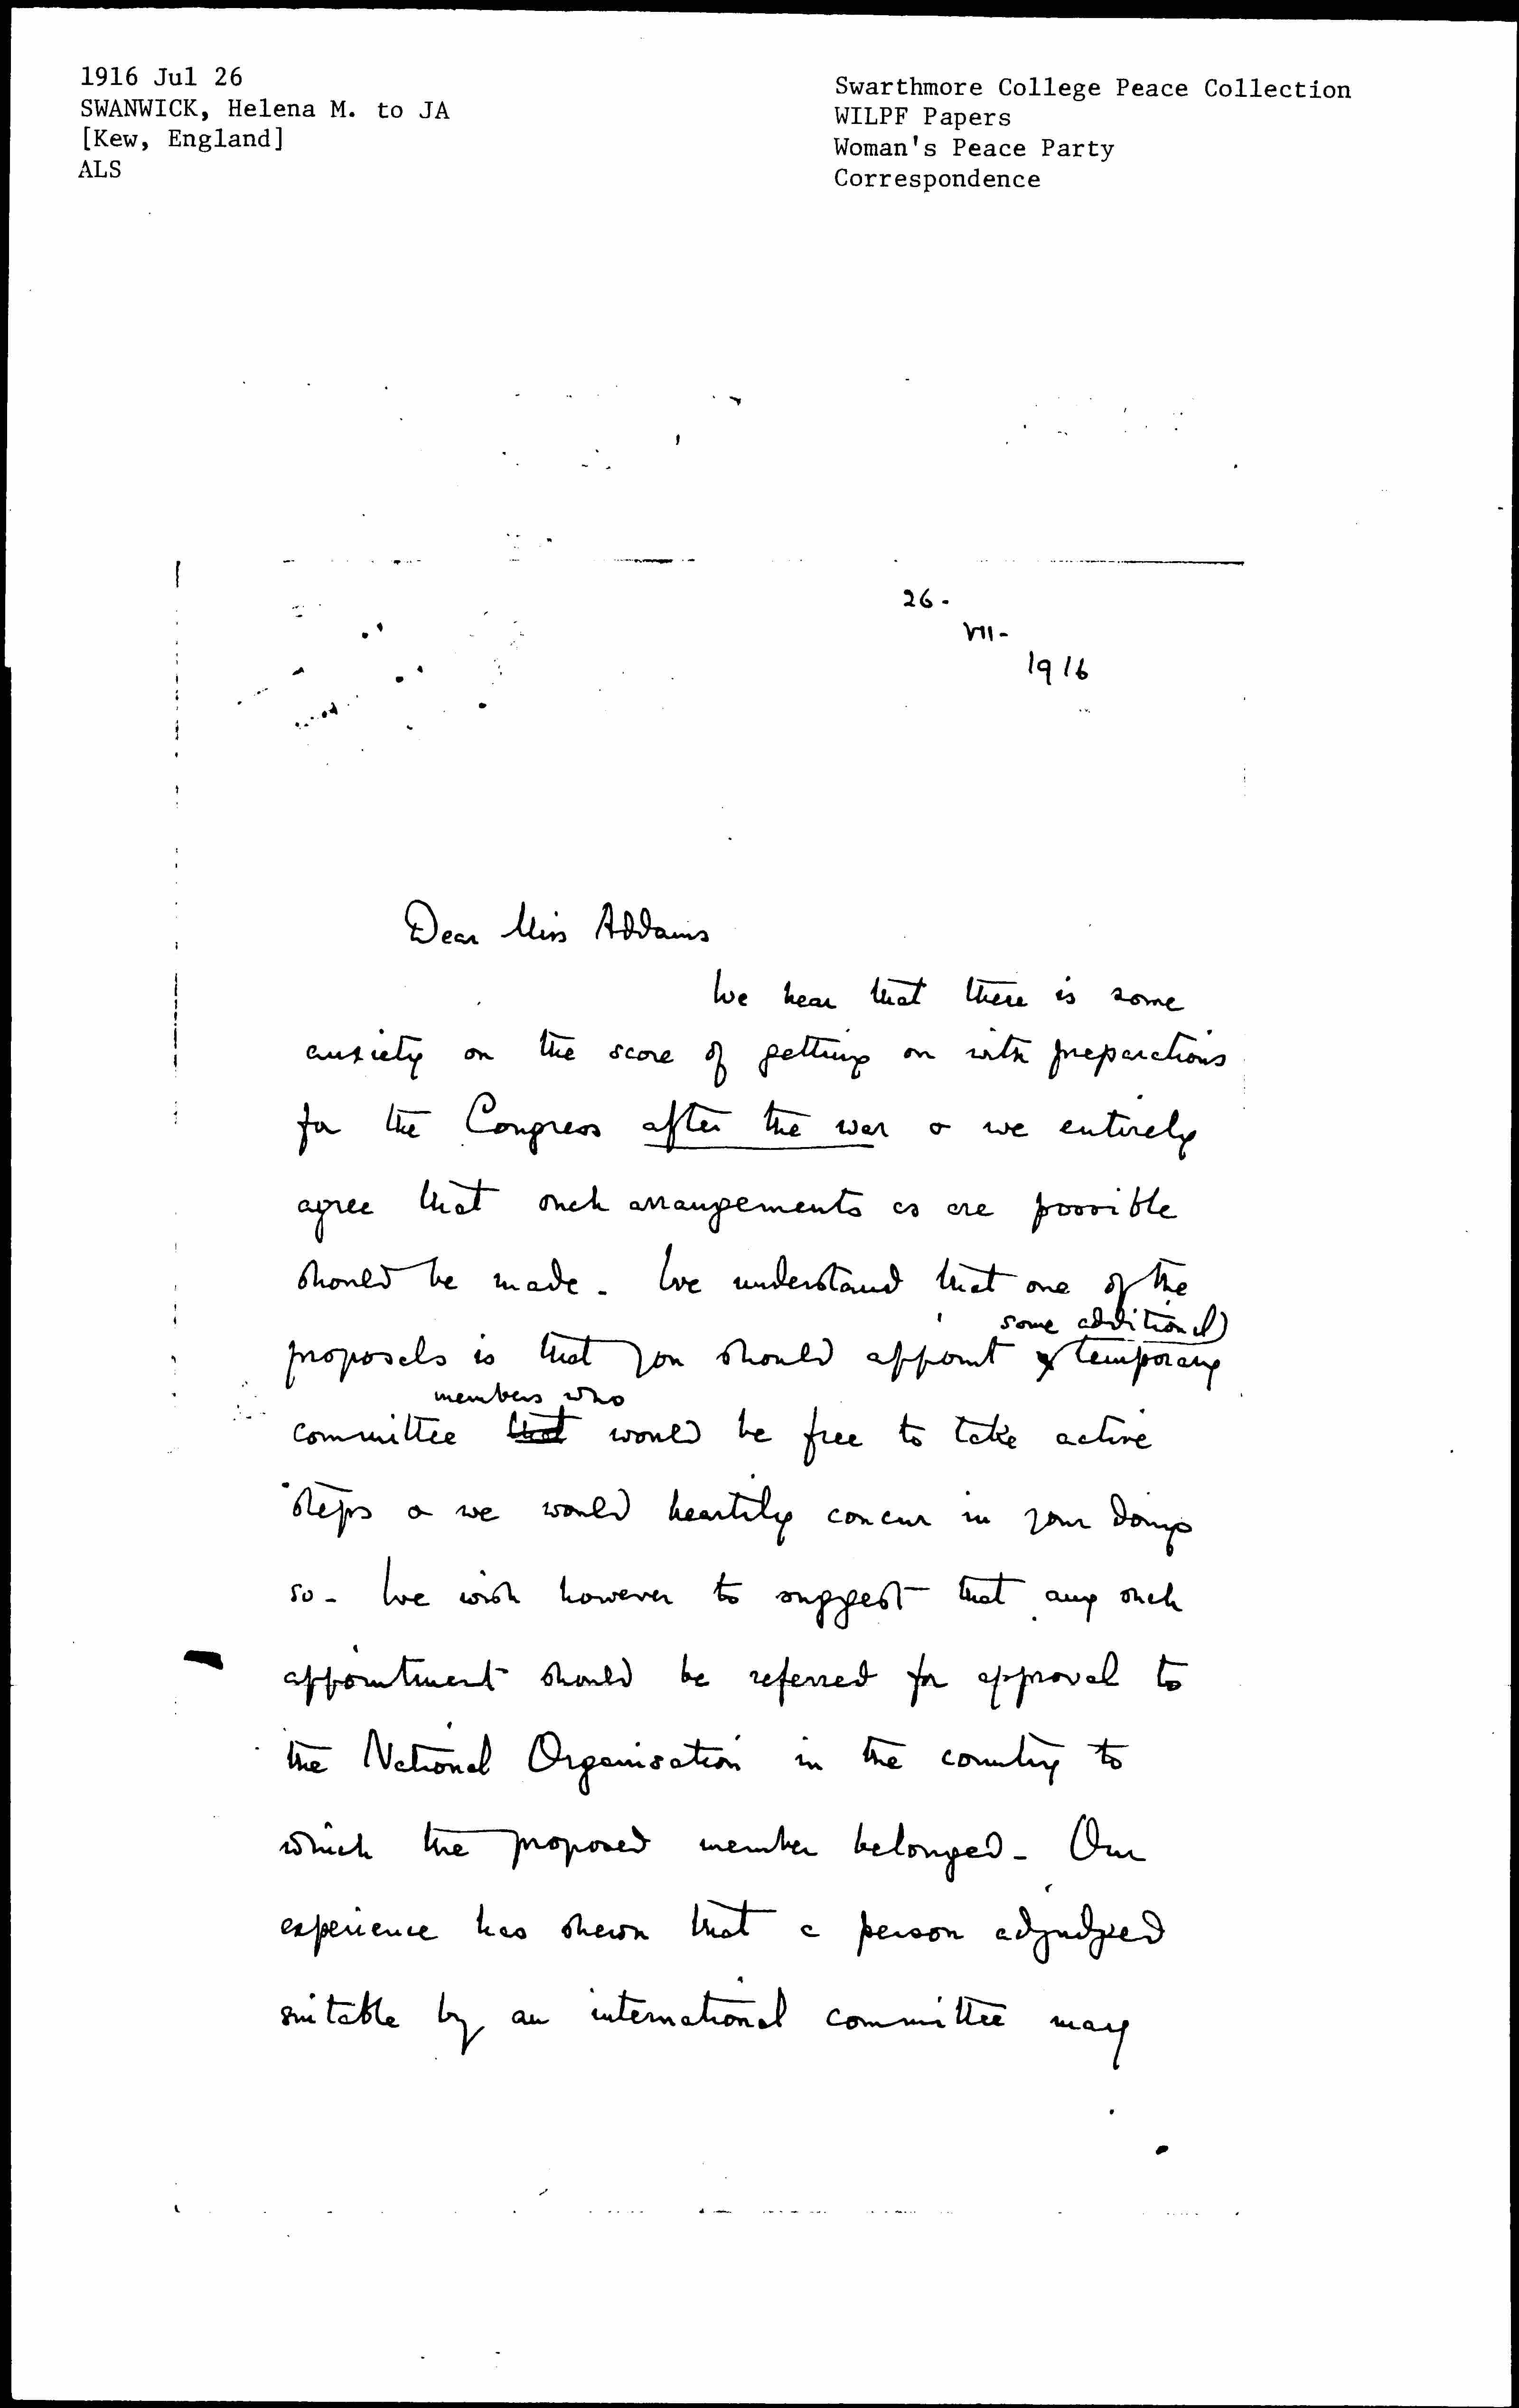 1916 Jul 26
SWANWICK, Helena M. to JA
[Kew, England]
ALS
Swarthmore College Peace Collection
WILPF Papers
Woman's Peace Party
Correspondence
26-
VII-
1916
Dear Miss Addams
We hear that there is some
anxiety on the score of getting on with preparations
for the Congress after the war & we entirely
agree that such arrangements as are possible
should be made. We understand that one of the
some additional
proposals is that you should appoint temporary
members who
committee that would be free to take active
steps & we would heartily concur in your doing
so. We wish however to suggest that any such
appointment should be referred for approval to
the National Organisation in the country to
which the proposed member belonged. Our
experience has shewn that a person adjudged
suitable by an international committee may